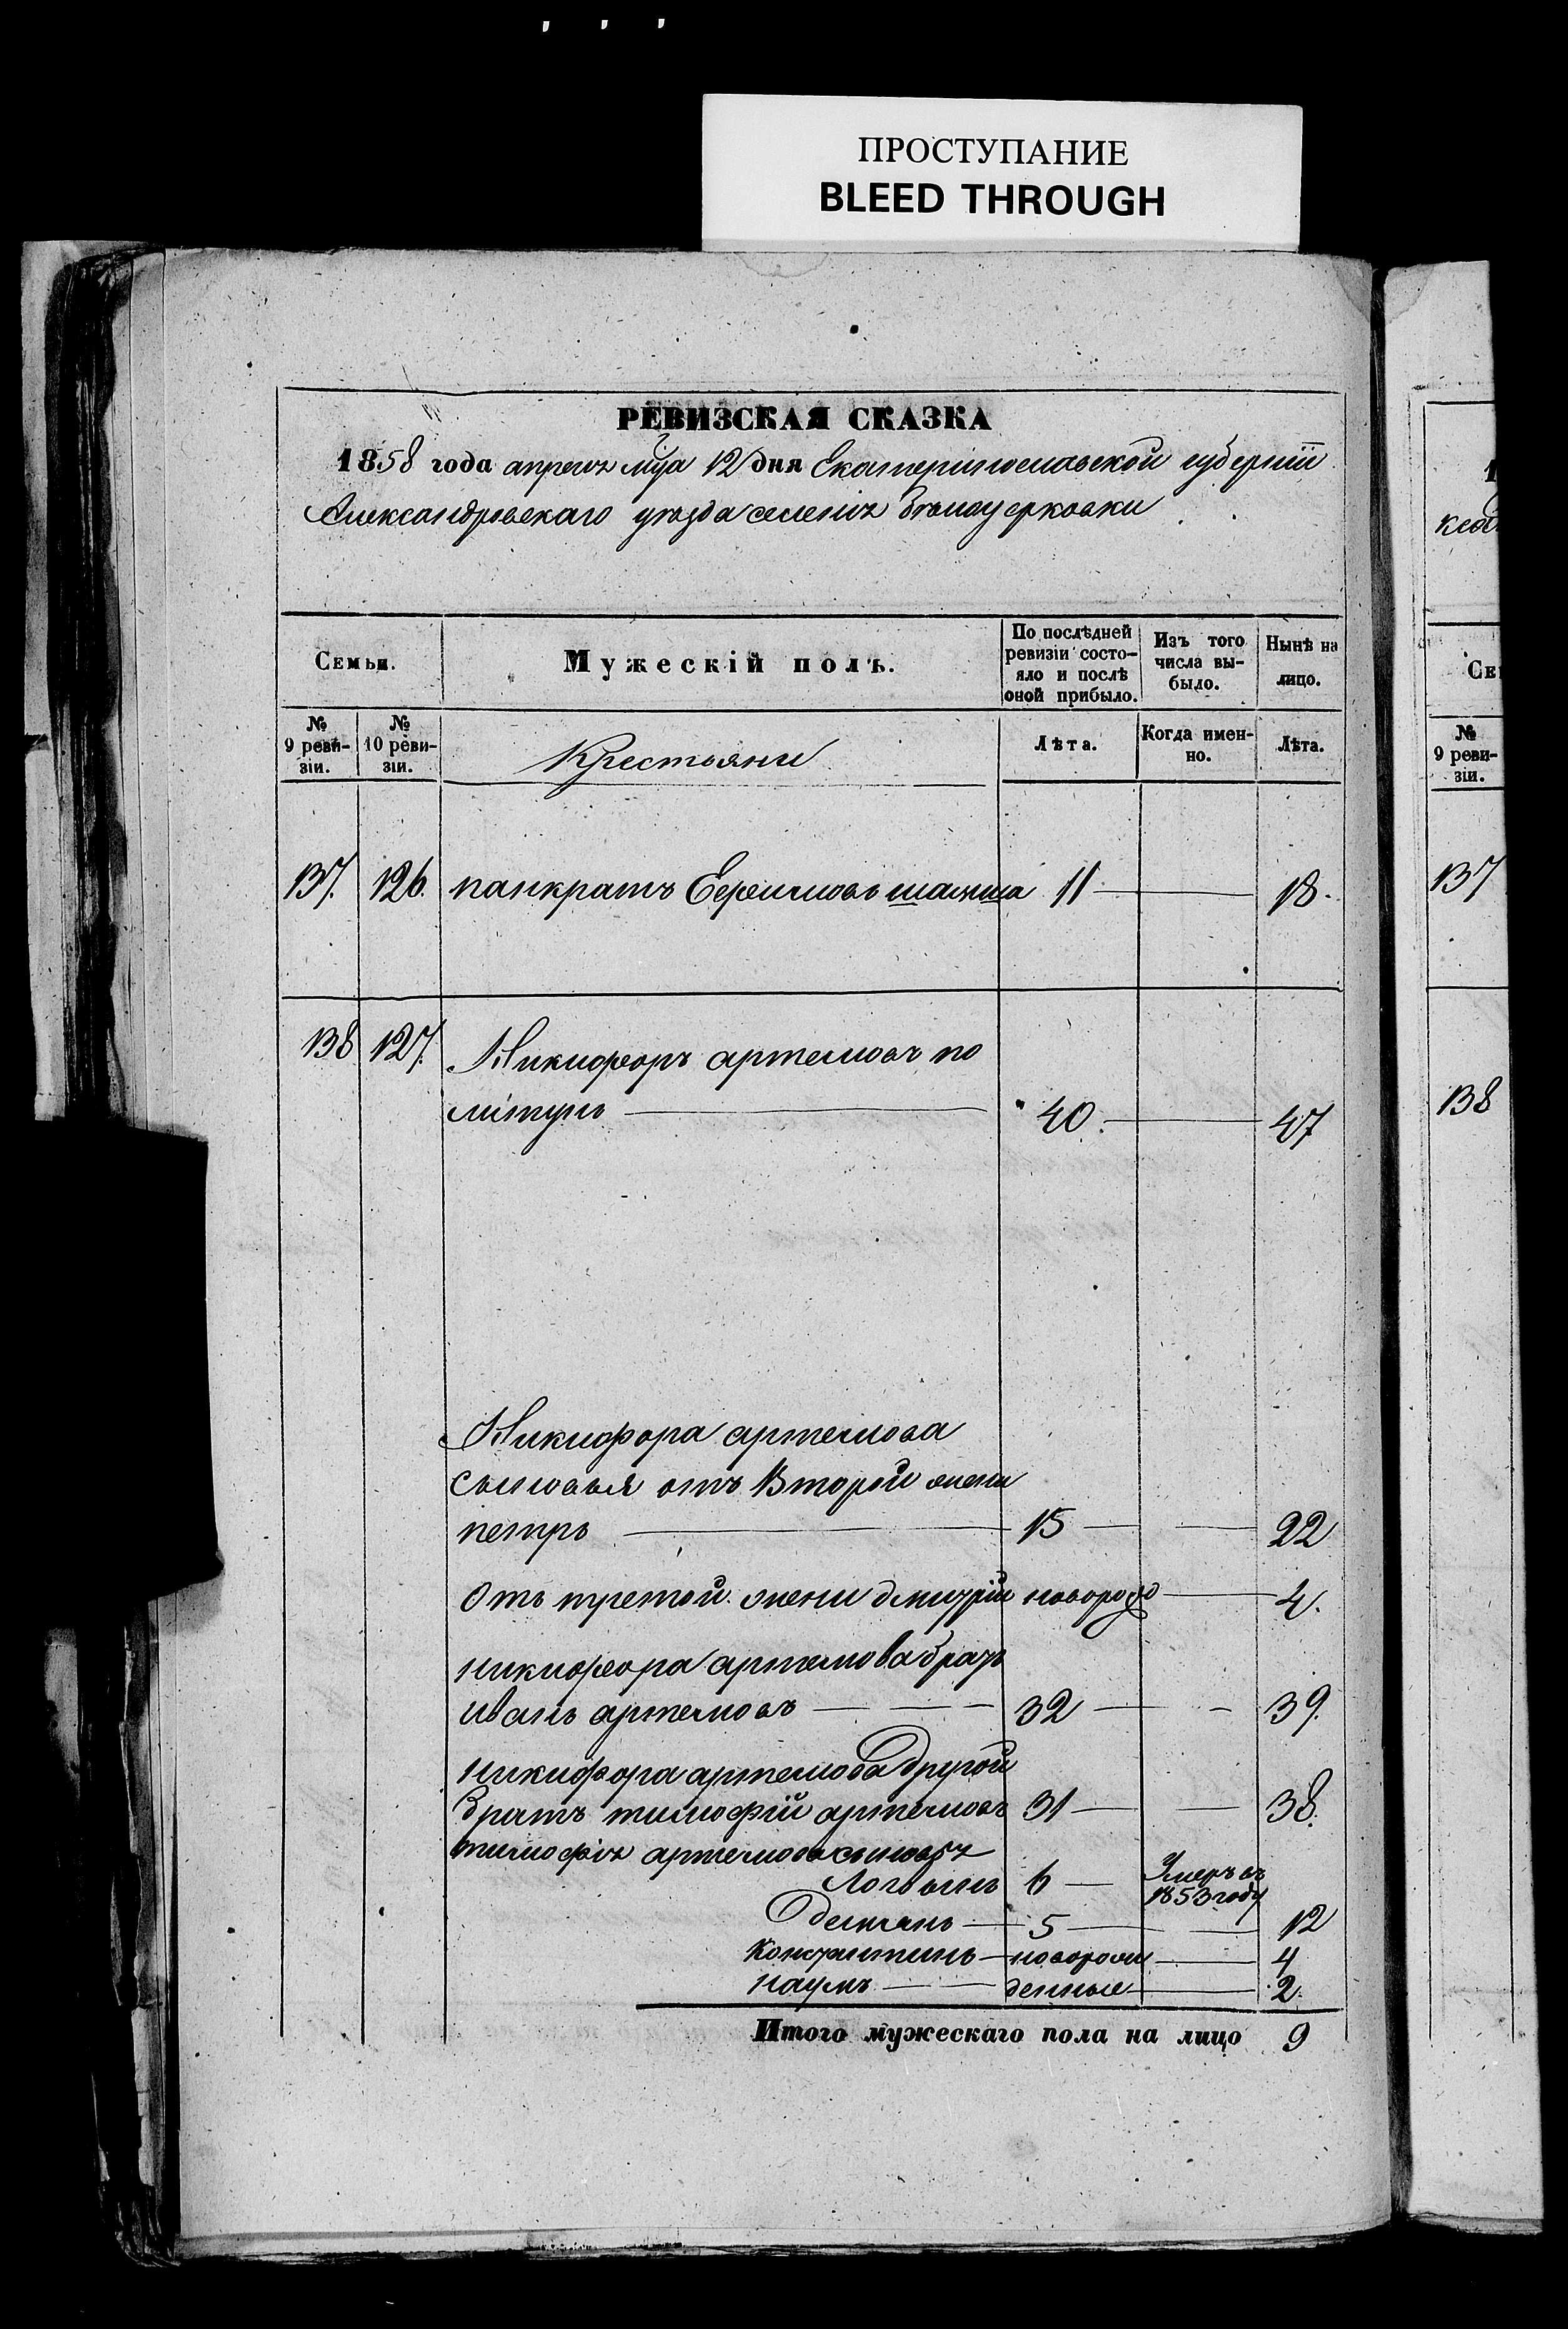 ПРОСТУПАНИЕ
BLEED THROUGH
РЕВИЗСКАЯ СКАЗКА
1858 года апреля мца 12 дня Екатеринославской губерніи
Александровскаго уѣзда селенія Бѣлоцерковки
Семьи. Мужескій полъ. По послѣдней ревизіи состояло и послѣ оной прибыло. Изъ того числа выбыло. Нынѣ на лицо.
№ 9 ревизіи. № 10 ревизіи. Крестьяни Лѣта. Когда именно. Лѣта.
137. 126. панкратъ Ефимовъ 11 18.
138 127. Никифоръ артемовъ по
литунъ 40. 47
Никифора артемова
сыновья отъ Второй жени
петръ 15 22
Отъ третой жени дмитрій новорож 4.
никифора артемова братъ
иванъ артемовъ 32 39.
никифора артемова другой
братъ тимофій артемовъ 31 38.
тимофія артемова сыновья
Логвинъ 6 Умеръ въ 1853 году
Демянъ 5 12
Константинъ новорож 4
наумъ денные 2.
Итого мужескаго пола на лицо 9
1
Се
№
9 реви-
зіи.
137
138